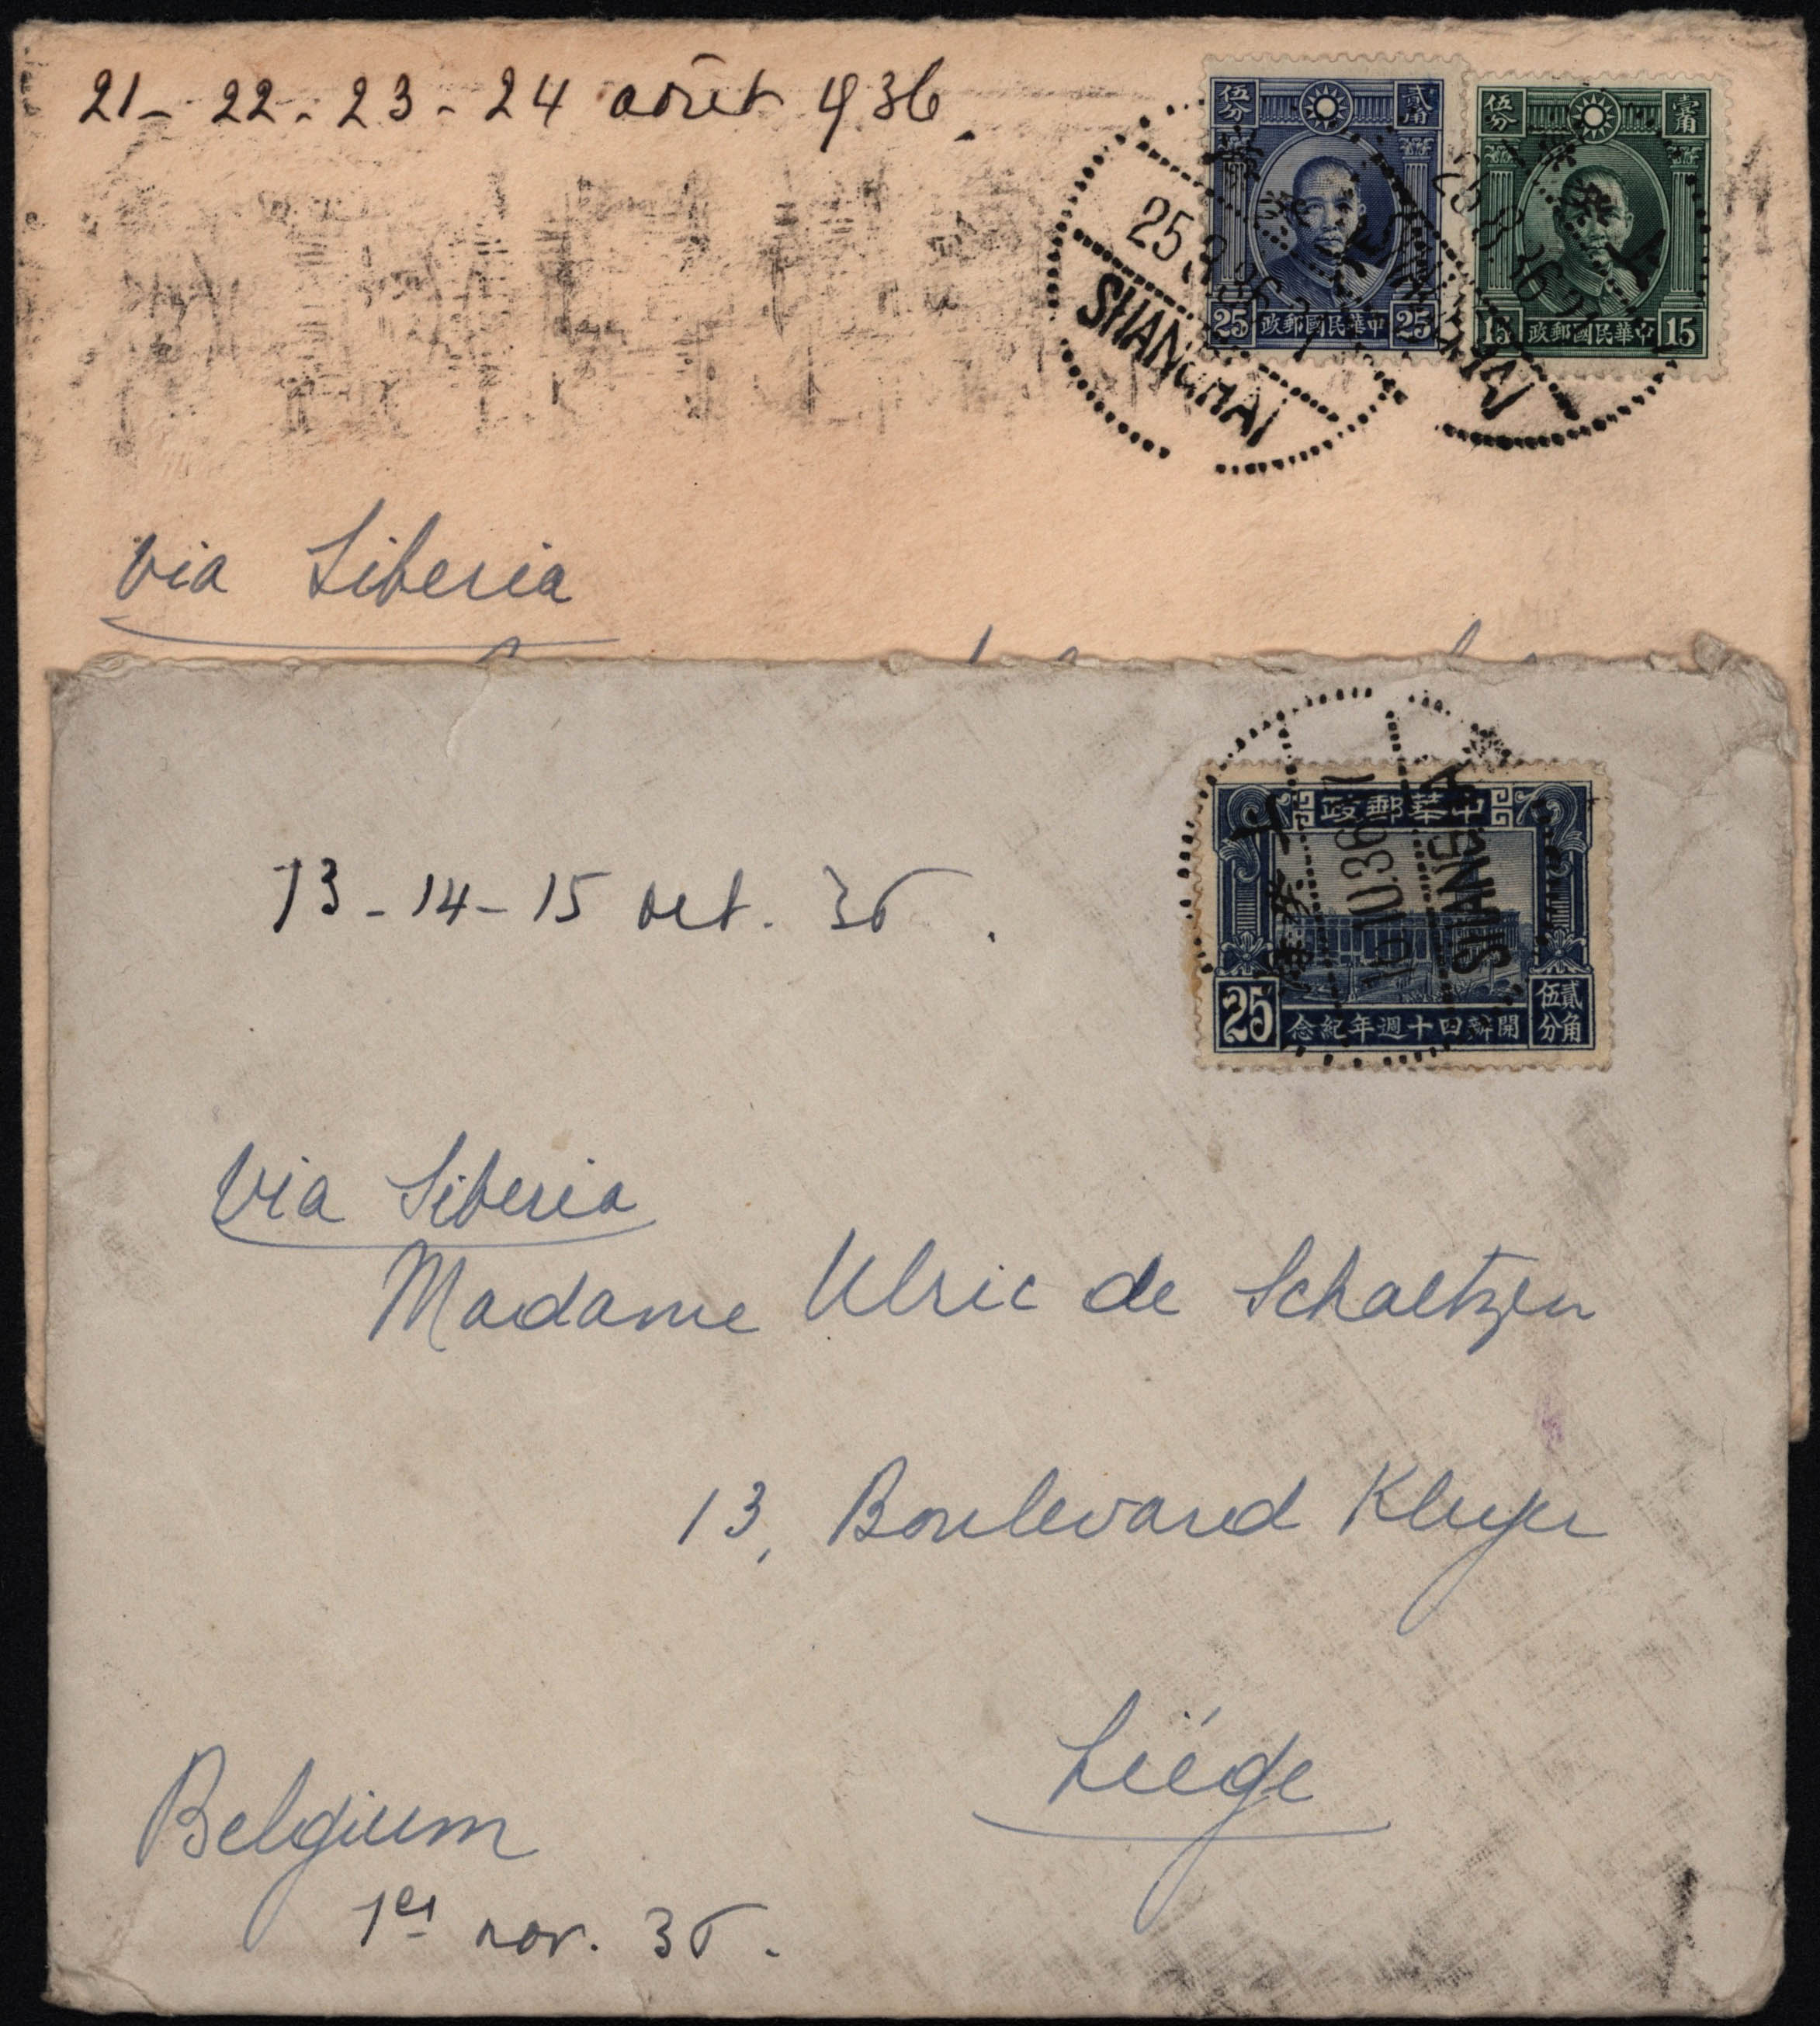 21 - 22 - 23 - 24 août 1936.
伍分 貳角
25 政郵國民華中 25
伍分 壹角
15 政郵國民華中 15
25.8.36
SHANGHAI
25.8.36
via Siberia
政郵華中
25 念紀年週十四辦開 伍分 貳角
上海
16.10.36
SHANGHAI
13 - 14 - 15 oct. 36.
Via Siberia
Madame Ulric de Schaetzen
13, Boulevard Kleyer
Liége
Belgium
1er nov. 36.